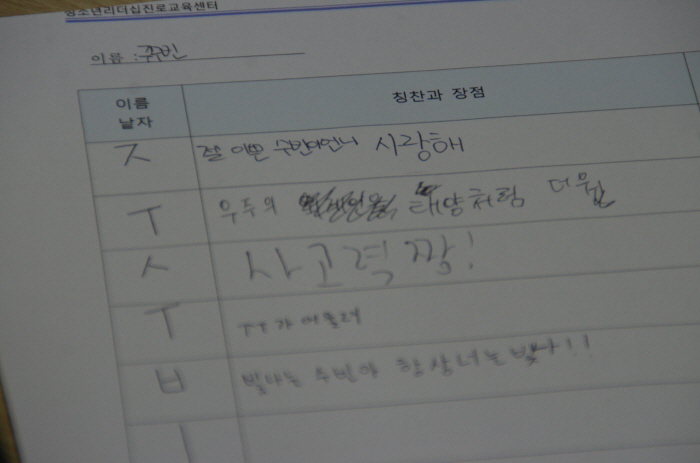 청소년리더십진로교육센터
이름 : 주빈
이름 날자
칭찬과 장점
ㅈ 잘 이쁜 수빈이언니 사랑해
ㅜ 우주의 태양처럼 더워
ㅅ 사고력 짱!
ㅜ ㅜㅜ가 어울려
ㅂ 빛나는 주빈아 항상너는 빛나!!
ㅣ